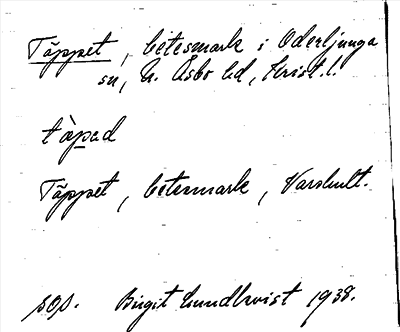 Täppet, betesmark i Oderljunga
sn, N. Åsbo hd, Krist. l.
tàpad
Täppet, betesmark, Varshult.
sop. Birgit Lundkvist 1938.